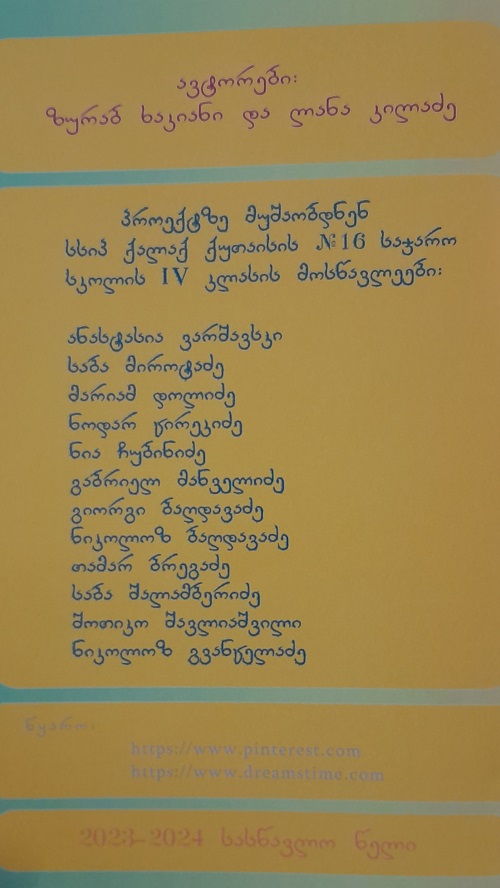 ავტორები:
ზურაბ საკიანი და ლანა კილაძე
პროექტზე მუშაობდნენ
სსიპ ქალაქ ქუთაისის №16 საჯარო
სკოლის IV კლასის მოსწავლეები:
ანასტასია ვარშავსკი
საბა მიროტაძე
მარიამ დოლიძე
ნოდარ წირეკიძე
ნია ჩუბინიძე
გაბრიელ მანველიძე
გიორგი ბაღდავაძე
ნიკოლოზ ბაღდავაძე
თამარ ბრეგაძე
საბა შალამბერიძე
შოთიკო შავლიაშვილი
ნიკოლოზ გვანცელაძე
წყარო:
https://www.pinterest.com
https://www.dreamstime.com
2023-2024 სასწავლო წელი